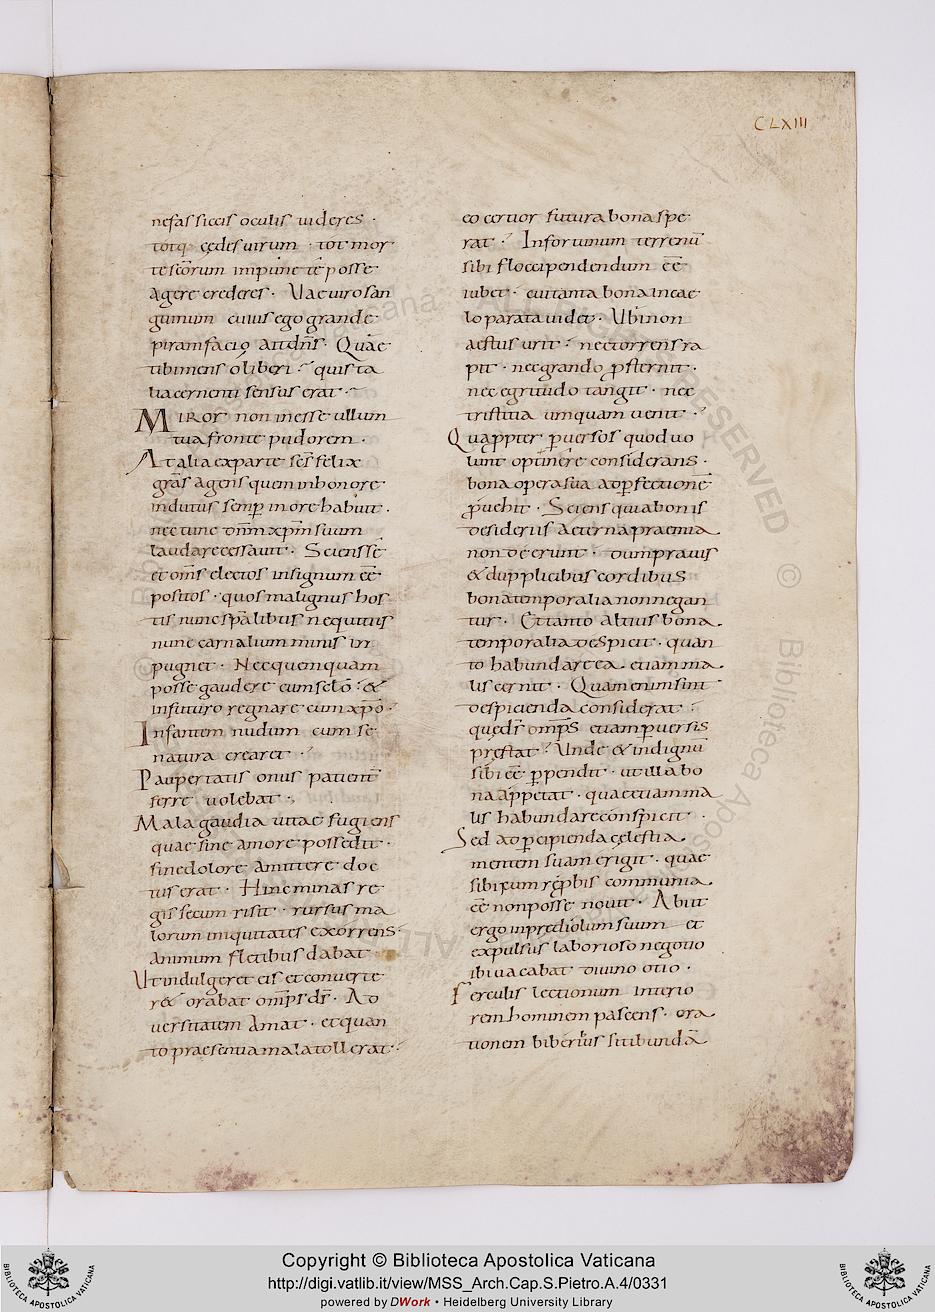 CLXIII
nefas siccis oculis uideres ·
totq; cędes uirum · tot mor
te sc̄orum impune te posse
agere crederes · Uae uiro san
guinum cuius ego grande
piram facio ait dn̄s · Quae
tibi mens o liberi · quis ta
lia cernenti sensus erat ·
Miror non inesse ullum
tua fronte pudorem ·
At alia ex parte ser̄ felix
grās agens quem in honore
indutus semp̄ in ore habuit ·
nec tunc dn̄m xp̄m suum
laudare cessauit · Sciens sē
et om̄s electos in signum eē
positos · quos malignus hos
tis nunc spālibus nequitiis
nunc carnalium minis in
pugnet · Nec quemquam
posse gaudere cum sc̄lō · &
in futuro regnare cum xp̄ō ·
Infantem nudum cum se
natura crearet ·
Paupertatis onus patient̄
ferre uolebat ·
Mala gaudia uitae fugiens
quae sine amore possedit ·
sine dolore amittere doc
tus erat · Hinc minas re
gis secum risit · rursus ma
lorum iniquitates exorrens
animum fletibus dabat ·
Ut indulgeret eis et conuerte
r& orabat omp̄s dš · Ad
uersitatem amat · et quan
to praesentia mala tollerat ·
eo certior futura bona spe
rat · Infortunium terrenū
sibi floccipendendum eē
iubet · cui tanta bona in cae
lo parata uidet · Ubi non
aestus urit · nec torrens ra
pit · nec grando p̄sternit ·
nec egritudo tangit · nec
tristitia umquam uenit ·
Quappter p̄uersos quod uo
lunt optinere considerans ·
bona opera sua ad p̄fectionē
p̄uehit · Sciens quia bonis
desideriis aeterna praemia
non deerunt · dum prauis
& dupplicibus cordibus
bona temporalia non negan
tur · Et tanto altius bona
temporalia despicit · quan
to habundare ea etiam ma
lis cernit · Quam enim sint
despicienda considerat ·
quę dš omp̄s etiam p̄uersis
pręstat · Unde & indignū
sibi eē p̄pendit · ut illa bo
na appetat · quae etiam ma
lis habundare conspicit ·
Sed ad p̄cipienda cęlestia
mentem suam erigit · quae
sibi cum rep̄bis communia
eē non posse nouit · Abiit
ergo in prediolum suum et
expulsus laborioso negotio
ibi uacabat diuino otio ·
Ferculis lectionum interio
rem hominem pascens · ora
tionem biberius sitibundā
Copyright © Biblioteca Apostolica Vaticana
http://digi.vatlib.it/view/MSS_Arch.Cap.S.Pietro.A.4/0331
powered by DWork • Heidelberg University Library